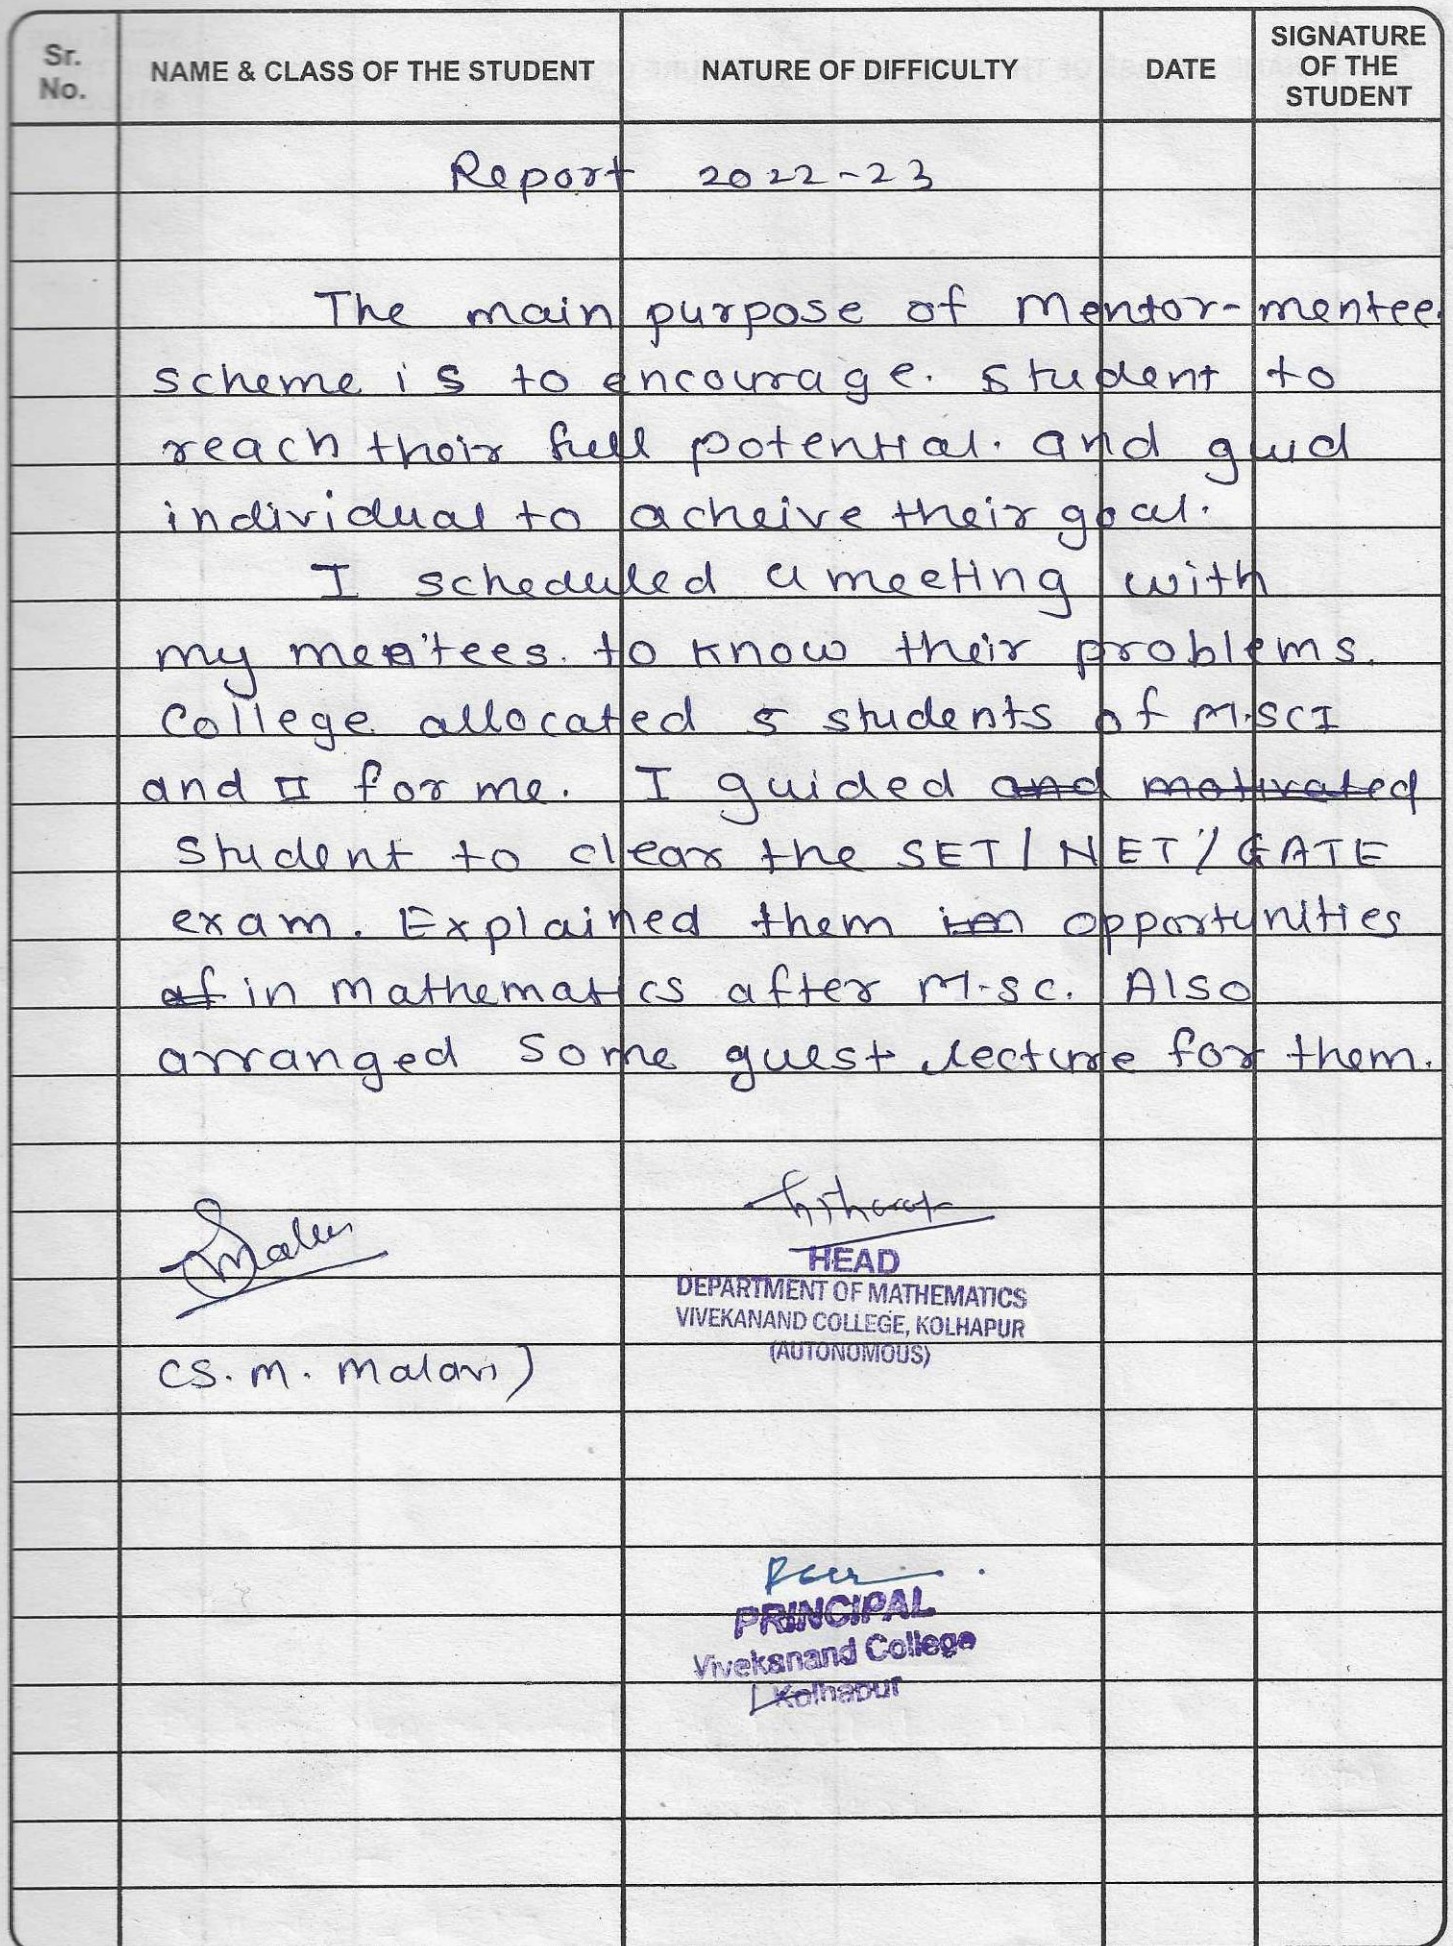 Sr. No. NAME & CLASS OF THE STUDENT NATURE OF DIFFICULTY DATE SIGNATURE OF THE STUDENT
Report 2022-23
The main purpose of Mentor-mentee
scheme is to encourage. student to
reach their full potential. and guid
individual to acheive their goal.
I scheduled a meeting with
my mentees. to know their problems.
College allocated 5 students of M.SCI
and II for me. I guided and motivated
student to clear the SET/NET/GATE
exam. Explained them opportunities
of in mathematics after M.sc. Also
arranged some guest lecture for them.
HEAD
DEPARTMENT OF MATHEMATICS
VIVEKANAND COLLEGE, KOLHAPUR
(AUTONOMOUS)
(S. M. Malavi)
PRINCIPAL
Vivekanand College
Kolhapur